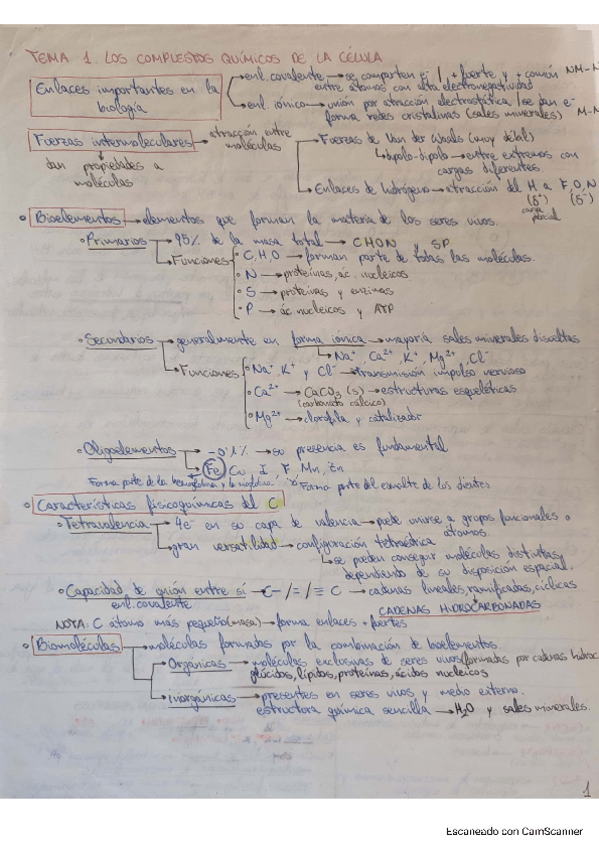 TEMA 1. LOS COMPUESTOS QUÍMICOS DE LA CÉLULA
Enlaces importantes en la biología
→ enl. covalente → se comparten e-, + fuerte y + común NM-N
entre átomos con alta electronegatividad
→ enl. iónico → unión por atracción electrostática (se dan e-
forma redes cristalinas (sales minerales) M-N
Fuerzas intermoleculares → atracción entre moléculas
dan propiedades a moléculas
→ Fuerzas de Van der Waals (muy débil)
↳ dipolo-dipolo → entre extremos con
cargas diferentes
→ Enlaces de hidrógeno → atracción del H a F, O, N
(δ+) carga parcial (δ-)
◦ Bioelementos → elementos que forman la materia de los seres vivos.
• Primarios → 95% de la masa total → CHON y SP
→ Funciones
◦ C, H, O → forman parte de todas las moléculas.
◦ N → proteínas, ac. nucleicos
◦ S → proteínas y enzimas
◦ P → ác. nucleicos y ATP
• Secundarios → generalmente en forma iónica → mayoría sales minerales disueltas
↳ Na+, Ca2+, K+, Mg2+, Cl-
→ Funciones
◦ Na+, K+ y Cl- → transmisión impulso nervioso
◦ Ca2+ → CaCO3 (s) → estructuras esqueléticas
(carbonato cálcico)
◦ Mg2+ → clorofila y catalizador
• Oligoelementos → 0'1% → su presencia es fundamental
→ Fe Cu, I, F, Mn, Zn
Forma parte de la hemoglobina y la mioglobina
Forma parte del esmalte de los dientes
◦ Características fisicoquímicas del C
• Tetravalencia → 4e- en su capa de valencia → puede unirse a grupos funcionales o
átomos.
→ gran versatilidad → configuración tetraédrica
↳ se pueden conseguir moléculas distintas
dependiendo de su disposición espacial.
• Capacidad de unión entre sí → C-/=/≡ C → cadenas lineales, ramificadas, cíclicas
enl. covalente
CADENAS HIDROCARBONADAS
NOTA: C átomo más pequeño (masa) → forma enlaces + fuertes
◦ Biomoléculas → moléculas formadas por la combinación de bioelementos.
→ Orgánicas → moléculas exclusivas de seres vivos (formadas por cadenas hidroc
glúcidos, lípidos, proteínas, ácidos nucleicos
→ Inorgánicas → presentes en seres vivos y medio externo.
estructura química sencilla → H2O y sales minerales.
1
Escaneado con CamScanner